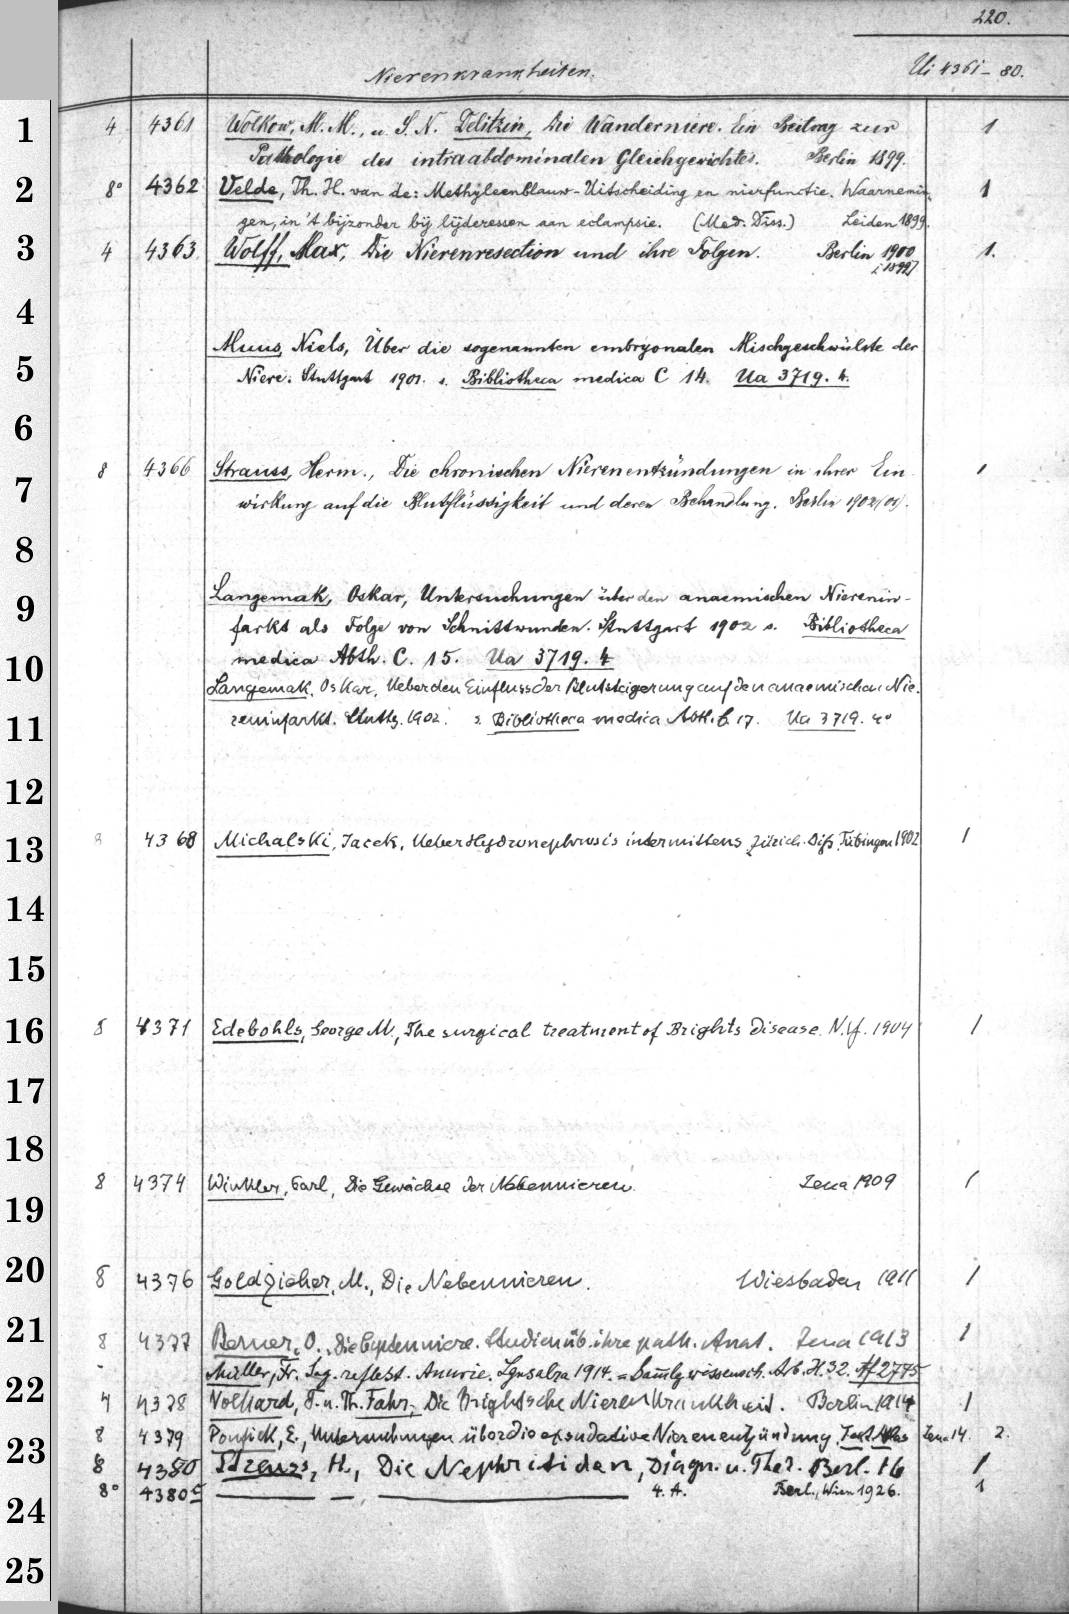 220.
Nierenkrankheiten. Ui 4361-80.
1 4 4361 Wolkow, M. M., u. S. N. Delitzin, Die Wanderniere. Ein Beitrag zur 1
Pathologie des intraabdominalen Gleichgewichtes. Berlin 1899.
2 8° 4362 Velde, Th. H. van de: Methyleenblauw-Uitscheiding en nierfunctie. Waarnemin- 1
gen, in 't bijzonder bij lijderessen aan eclampsie. (Med. Diss.) Leiden 1899.
3 4 4363 Wolff, Max, Die Nierenresection und ihre Folgen. Berlin 1900 1.
[1899]
4
Muus, Niels, Über die sogenannten embryonalen Mischgeschwülste der
5 Niere. Stuttgart 1901. s. Bibliotheca medica C 14. Ua 3719. 4.
6
8 4366 Strauss, Herm., Die chronischen Nierenentzündungen in ihrer Ein- 1
7 wirkung auf die Blutflüssigkeit und deren Behandlung. Berlin 1902(01).
8
9 Langemak, Oskar, Untersuchungen über den anaemischen Nierenin-
farkt als Folge von Schnittwunden. Stuttgart 1902 s. Bibliotheca
10 medica Abth. C. 15. Ua 3719. 4
Langemak, Oskar, Ueber den Einfluss der Blutsteigerung auf den anaemischen Nie-
11 reninfarkt. Stuttg. 1902. s. Bibliotheca medica Abth. C 17. Ua 3719. 4°
12
13 8 4368 Michalski, Jacek, Ueber Hydronephrosis intermittens. Zürich. Diss. Tübingen 1902 1
14
15
16 8 4371 Edebohls, George M., The surgical treatment of Brights disease. N.Y. 1904 1
17
18
8 4374 Winkler, Carl, Die Gewächse der Nebennieren. Jena 1909 1
19
20 8 4376 Goldzieher, M., Die Nebennieren. Wiesbaden 1911 1
21 8 4377 Berner, O., Die Cystenniere. Studien üb. ihre path. Anat. Jena 1913 1
Müller, Fr. Sog. reflekt. Anurie. Lgnsalza 1914. = Samlg wissensch. Arb. H. 32. Af 2775
22 4 4378 Volhard, F. u. Th. Fahr, Die Brightsche Nierenkrankheit. Berlin 1914 1
8 4379 Ponfick, E., Untersuchungen über die exsudative Nierenentzündung. Text. Atlas Jena 14. 2.
23 8 4380 Strauss, H., Die Nephritiden, Diagn. u. Ther. Berl. 16 1
8° 4380c 4. A. Berl., Wien 1926. 1
24
25